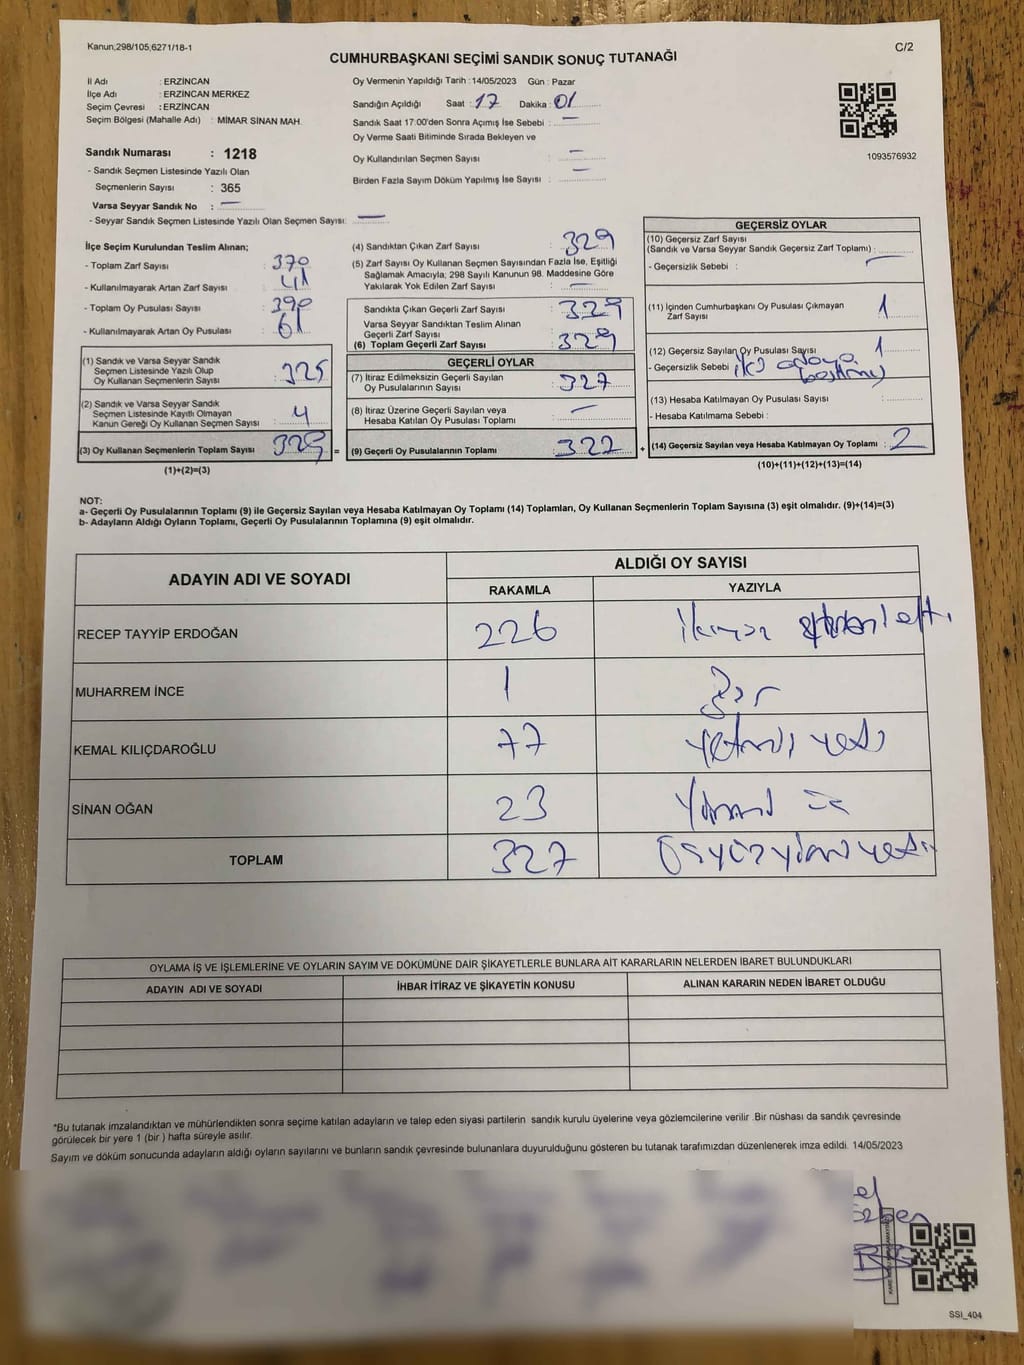 Kanun;298/105;6271/18-1
C/2
CUMHURBAŞKANI SEÇİMİ SANDIK SONUÇ TUTANAĞI
İl Adı : ERZİNCAN
İlçe Adı : ERZİNCAN MERKEZ
Seçim Çevresi : ERZİNCAN
Seçim Bölgesi (Mahalle Adı) : MİMAR SİNAN MAH.
Sandık Numarası : 1218
- Sandık Seçmen Listesinde Yazılı Olan
Seçmenlerin Sayısı : 365
Varsa Seyyar Sandık No : —
- Seyyar Sandık Seçmen Listesinde Yazılı Olan Seçmen Sayısı: —
Oy Vermenin Yapıldığı Tarih : 14/05/2023 Gün : Pazar
Sandığın Açıldığı Saat : 17 Dakika : 01
Sandık Saat 17:00'den Sonra Açımış İse Sebebi : —
Oy Verme Saati Bitiminde Sırada Bekleyen ve
Oy Kullandırılan Seçmen Sayısı : —
Birden Fazla Sayım Döküm Yapılmış İse Sayısı : —
1093576932
İlçe Seçim Kurulundan Teslim Alınan;
- Toplam Zarf Sayısı : 370
- Kullanılmayarak Artan Zarf Sayısı : 41
- Toplam Oy Pusulası Sayısı : 390
- Kullanılmayarak Artan Oy Pusulası : 61
(1) Sandık ve Varsa Seyyar Sandık
Seçmen Listesinde Yazılı Olup
Oy Kullanan Seçmenlerin Sayısı : 325
(2) Sandık ve Varsa Seyyar Sandık
Seçmen Listesinde Kayıtlı Olmayan
Kanun Gereği Oy Kullanan Seçmen Sayısı : 4
(3) Oy Kullanan Seçmenlerin Toplam Sayısı : 329
(1)+(2)=(3)
(4) Sandıktan Çıkan Zarf Sayısı : 329
(5) Zarf Sayısı Oy Kullanan Seçmen Sayısından Fazla İse, Eşitliği
Sağlamak Amacıyla; 298 Sayılı Kanunun 98. Maddesine Göre
Yakılarak Yok Edilen Zarf Sayısı : —
Sandıkta Çıkan Geçerli Zarf Sayısı : 329
Varsa Seyyar Sandıktan Teslim Alınan
Geçerli Zarf Sayısı :
(6) Toplam Geçerli Zarf Sayısı : 329
GEÇERLİ OYLAR
(7) İtiraz Edilmeksizin Geçerli Sayılan
Oy Pusulalarının Sayısı : 327
(8) İtiraz Üzerine Geçerli Sayılan veya
Hesaba Katılan Oy Pusulası Toplamı : —
= (9) Geçerli Oy Pusulalarının Toplamı : 327
GEÇERSİZ OYLAR
(10) Geçersiz Zarf Sayısı
(Sandık ve Varsa Seyyar Sandık Geçersiz Zarf Toplamı) : —
- Geçersizlik Sebebi :
(11) İçinden Cumhurbaşkanı Oy Pusulası Çıkmayan
Zarf Sayısı : 1
(12) Geçersiz Sayılan Oy Pusulası Sayısı : 1
- Geçersizlik Sebebi : iki adaya
(13) Hesaba Katılmayan Oy Pusulası Sayısı :
- Hesaba Katılmama Sebebi :
+ (14) Geçersiz Sayılan veya Hesaba Katılmayan Oy Toplamı : 2
(10)+(11)+(12)+(13)=(14)
NOT:
a- Geçerli Oy Pusulalarının Toplamı (9) ile Geçersiz Sayılan veya Hesaba Katılmayan Oy Toplamı (14) Toplamları, Oy Kullanan Seçmenlerin Toplam Sayısına (3) eşit olmalıdır. (9)+(14)=(3)
b- Adayların Aldığı Oyların Toplamı, Geçerli Oy Pusulalarının Toplamına (9) eşit olmalıdır.
ADAYIN ADI VE SOYADI
ALDIĞI OY SAYISI
RAKAMLA YAZIYLA
RECEP TAYYİP ERDOĞAN 226
MUHARREM İNCE 1
KEMAL KILIÇDAROĞLU 77 yetmiş yedi
SİNAN OĞAN 23 Yirmi üç
TOPLAM 327 üçyüzyirmiyedi
OYLAMA İŞ VE İŞLEMLERİNE VE OYLARIN SAYIM VE DÖKÜMÜNE DAİR ŞİKAYETLERLE BUNLARA AİT KARARLARIN NELERDEN İBARET BULUNDUKLARI
ADAYIN ADI VE SOYADI İHBAR İTİRAZ VE ŞİKAYETİN KONUSU ALINAN KARARIN NEDEN İBARET OLDUĞU
*Bu tutanak imzalandıktan ve mühürlendikten sonra seçime katılan adayların ve talep eden siyasi partilerin sandık kurulu üyelerine veya gözlemcilerine verilir .Bir nüshası da sandık çevresinde
görülecek bir yere 1 (bir ) hafta süreyle asılır.
Sayım ve döküm sonucunda adayların aldığı oyların sayılarını ve bunların sandık çevresinde bulunanlara duyurulduğunu gösteren bu tutanak tarafımızdan düzenlenerek imza edildi. 14/05/2023
SSI_404